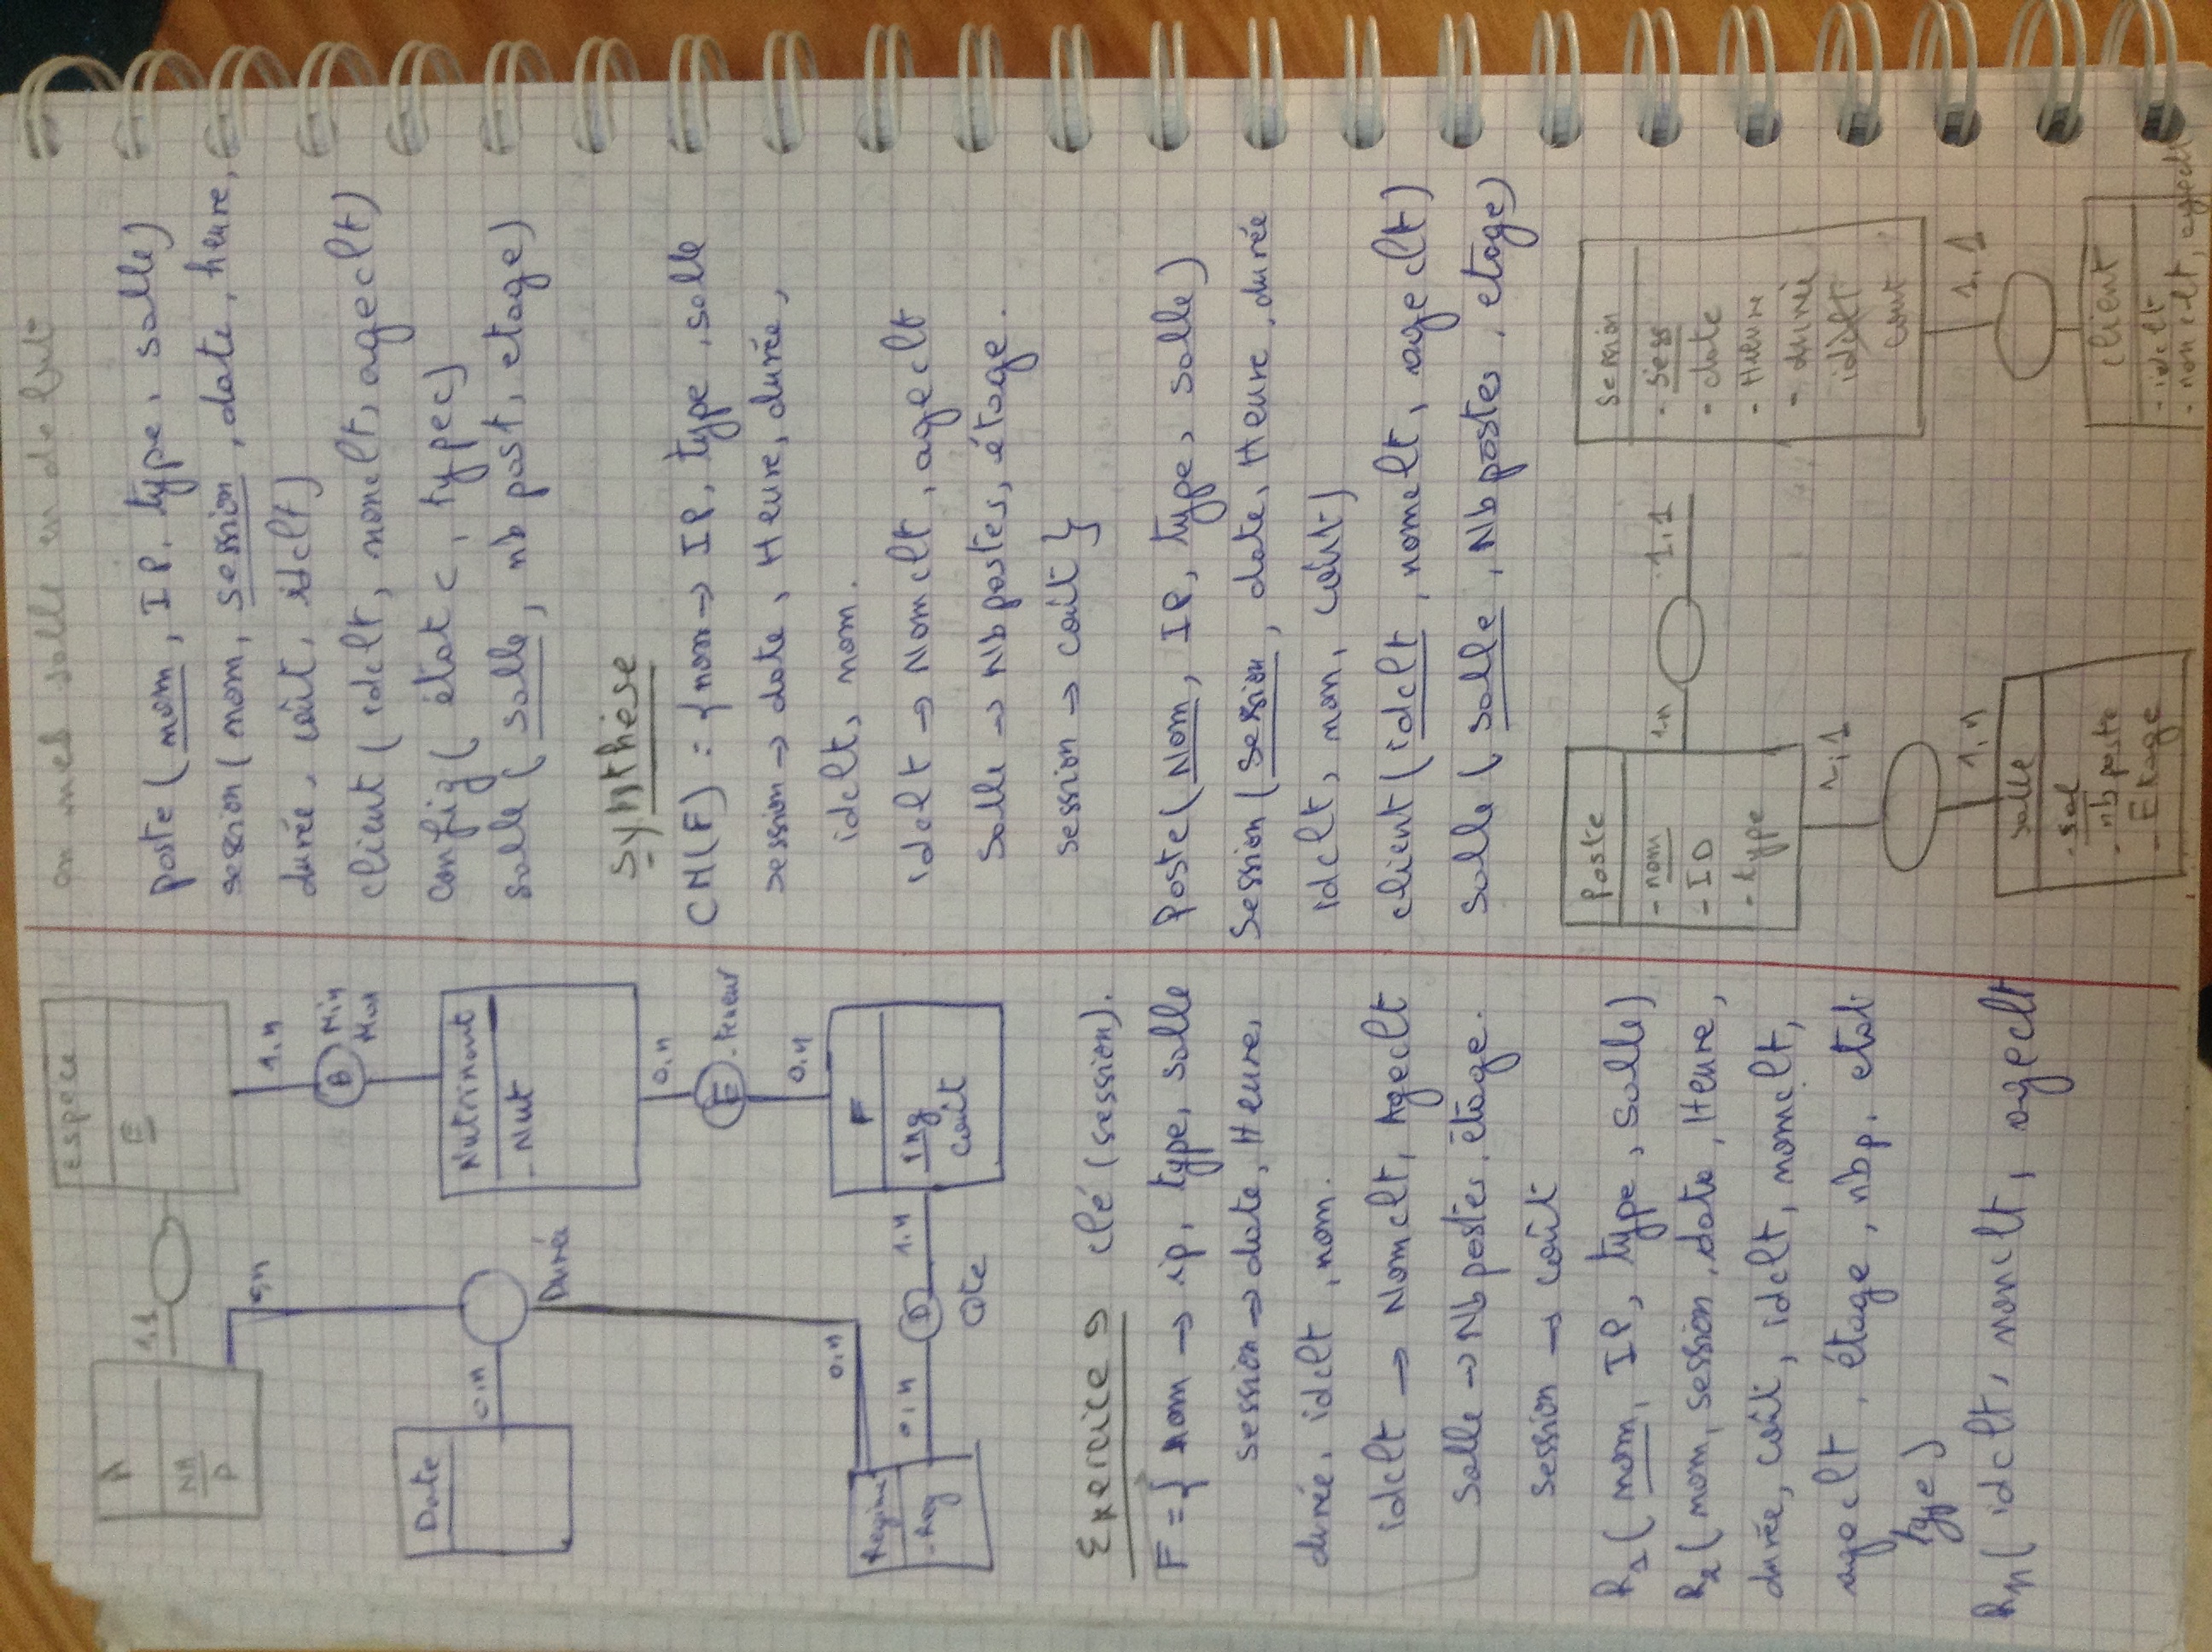 A
NA
P
1,1
espace
E
0,n
1.n
B
Min
Max
Date
0,n
Durée
Nutriment
- Nut
0.n
E
- teneur
0.n
0.n
Regime
- Reg
0,n
D
1.n
Qte
F
ing
coût
Exercice 9 clé (session).
F = { nom → ip, type, salle
session → date, Heure,
durée, idclt, nom.
idclt → Nomclt, Ageclt
Salle → Nb postes, étage.
session → coût
R1 ( nom, IP, type, Salle)
R2 ( nom, session, date, Heure,
durée, coût, idclt, nomclt,
ageclt, étage, nbp, etat
type)
Rn( idclt, nomclt, ageclt
on met salle en debut
poste ( nom, IP, type, salle)
session ( nom, session, date, heure,
durée, coût, idclt)
client ( idclt, nomclt, ageclt)
config ( état c, type c)
salle ( salle, nb post, etage)
Synthèse
CM(F) = { nom → IP, type, salle
session → date, Heure, durée,
idclt, nom.
idclt → Nomclt, ageclt
Salle → Nb postes, étage.
session → coût }
Poste ( Nom, IP, type, salle)
Session ( session, date, Heure, durée
idclt, nom, coût)
client ( idclt, nomclt, ageclt)
salle ( salle, Nb postes, etage)
Poste
- nom
- ID
- type
1-n
1.1
session
- sess
- date
- Heure
- durée
idclt
cout
1,1
1.n
salle
- sal
- nb poste
- Etage
1.1
client
- idclt
- nomclt, ageclt